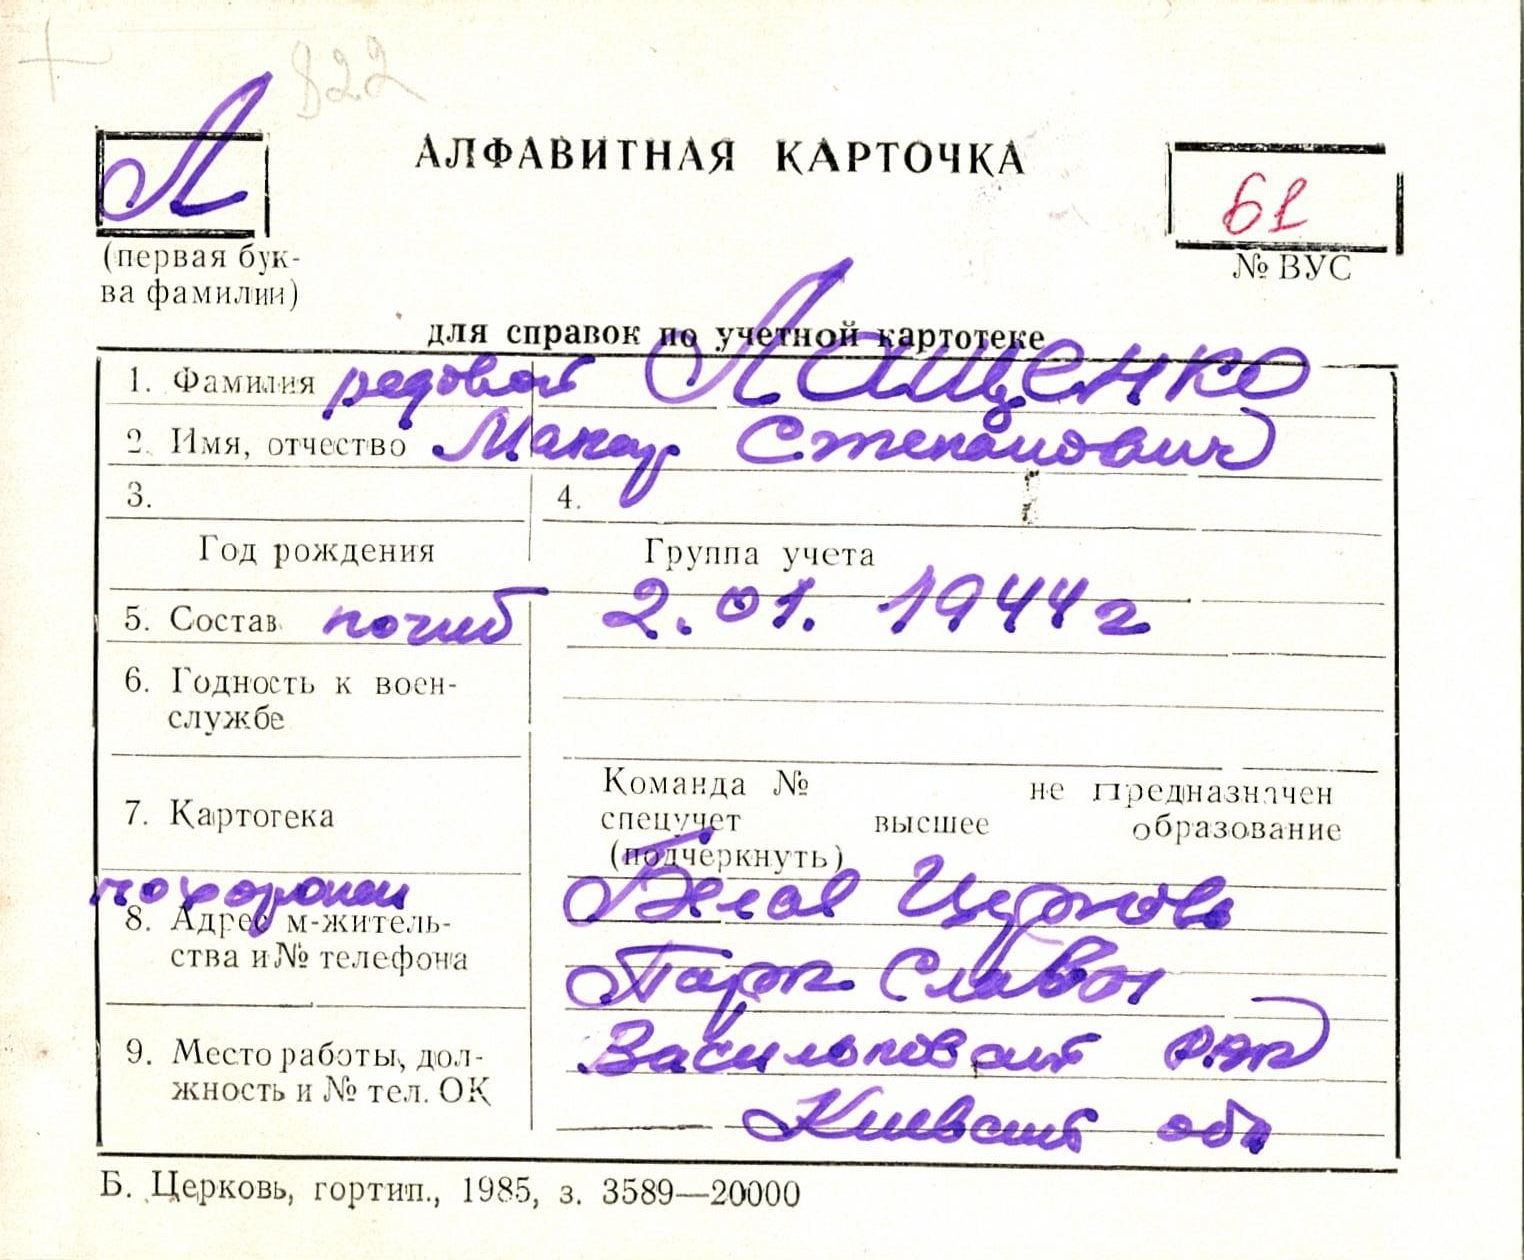 822
Л
АЛФАВИТНАЯ КАРТОЧКА
61
(первая бук-
ва фамилии)
№ ВУС
для справок по учетной картотеке
1. Фамилия рядовой Лащенко
2. Имя, отчество Макар Степанович
3. 4.
Год рождения Группа учета
5. Состав погиб 2.01. 1944 г
6. Годность к воен-
службе
Команда № не предназначен
7. Картотека спецучет высшее образование
(подчеркнуть)
похоронен Белая Церковь
8. Адрес м-житель-
ства и № телефона Парк Славы
9. Место работы, дол-
жность и № тел. ОК
Васильковский
Киевский обл
Б. Церковь, гортип., 1985, з. 3589—20000